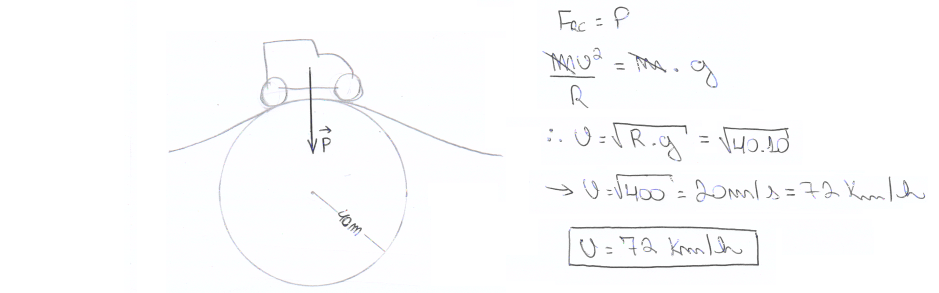 P
40m
FRC = P
mv² = m . g
R
∴ v = √R.g = √40.10
→ v = √400 = 20m/s = 72 Km/h
v = 72 Km/h